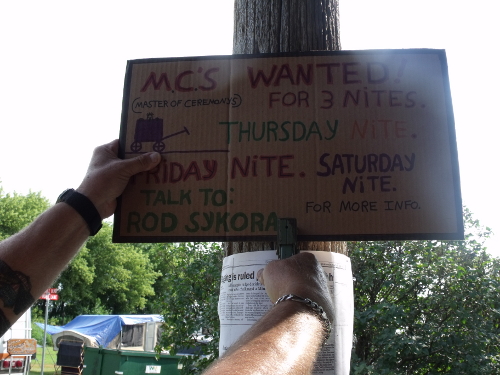 M.C.'S WANTED!
(MASTER OF CEREMONYS)
FOR 3 NITES.
THURSDAY NITE.
FRIDAY NITE. SATURDAY
NITE.
TALK TO:
ROD SYKORA
FOR MORE INFO.
is ruled